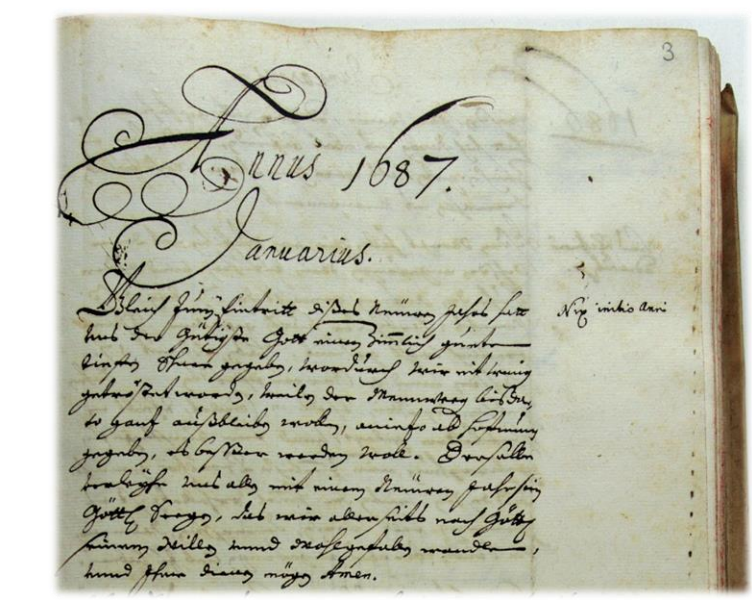 3
Annus 1687.
Januarius.
Gleich zum Eintritt dises Neuen Jahrs hatt
Nix initio Anni
uns der Gütigste Gott einen zimlich gueten
tieffen Schnee gegeben, wordurch wir nit wenig
getröstet worden, weilen der
to gantz außbleiben wollen, aniezo ab hoffnung
gegeben, es besser werden woll. Derselbe
verleyhe uns allen mit einem Neuen Jahr sein
Göttl Seegen, das wir allerseits nach Göttl
seinem Willen unnd Wohlgefallen wandlen,
unnd Ihme dienen mögen Amen.